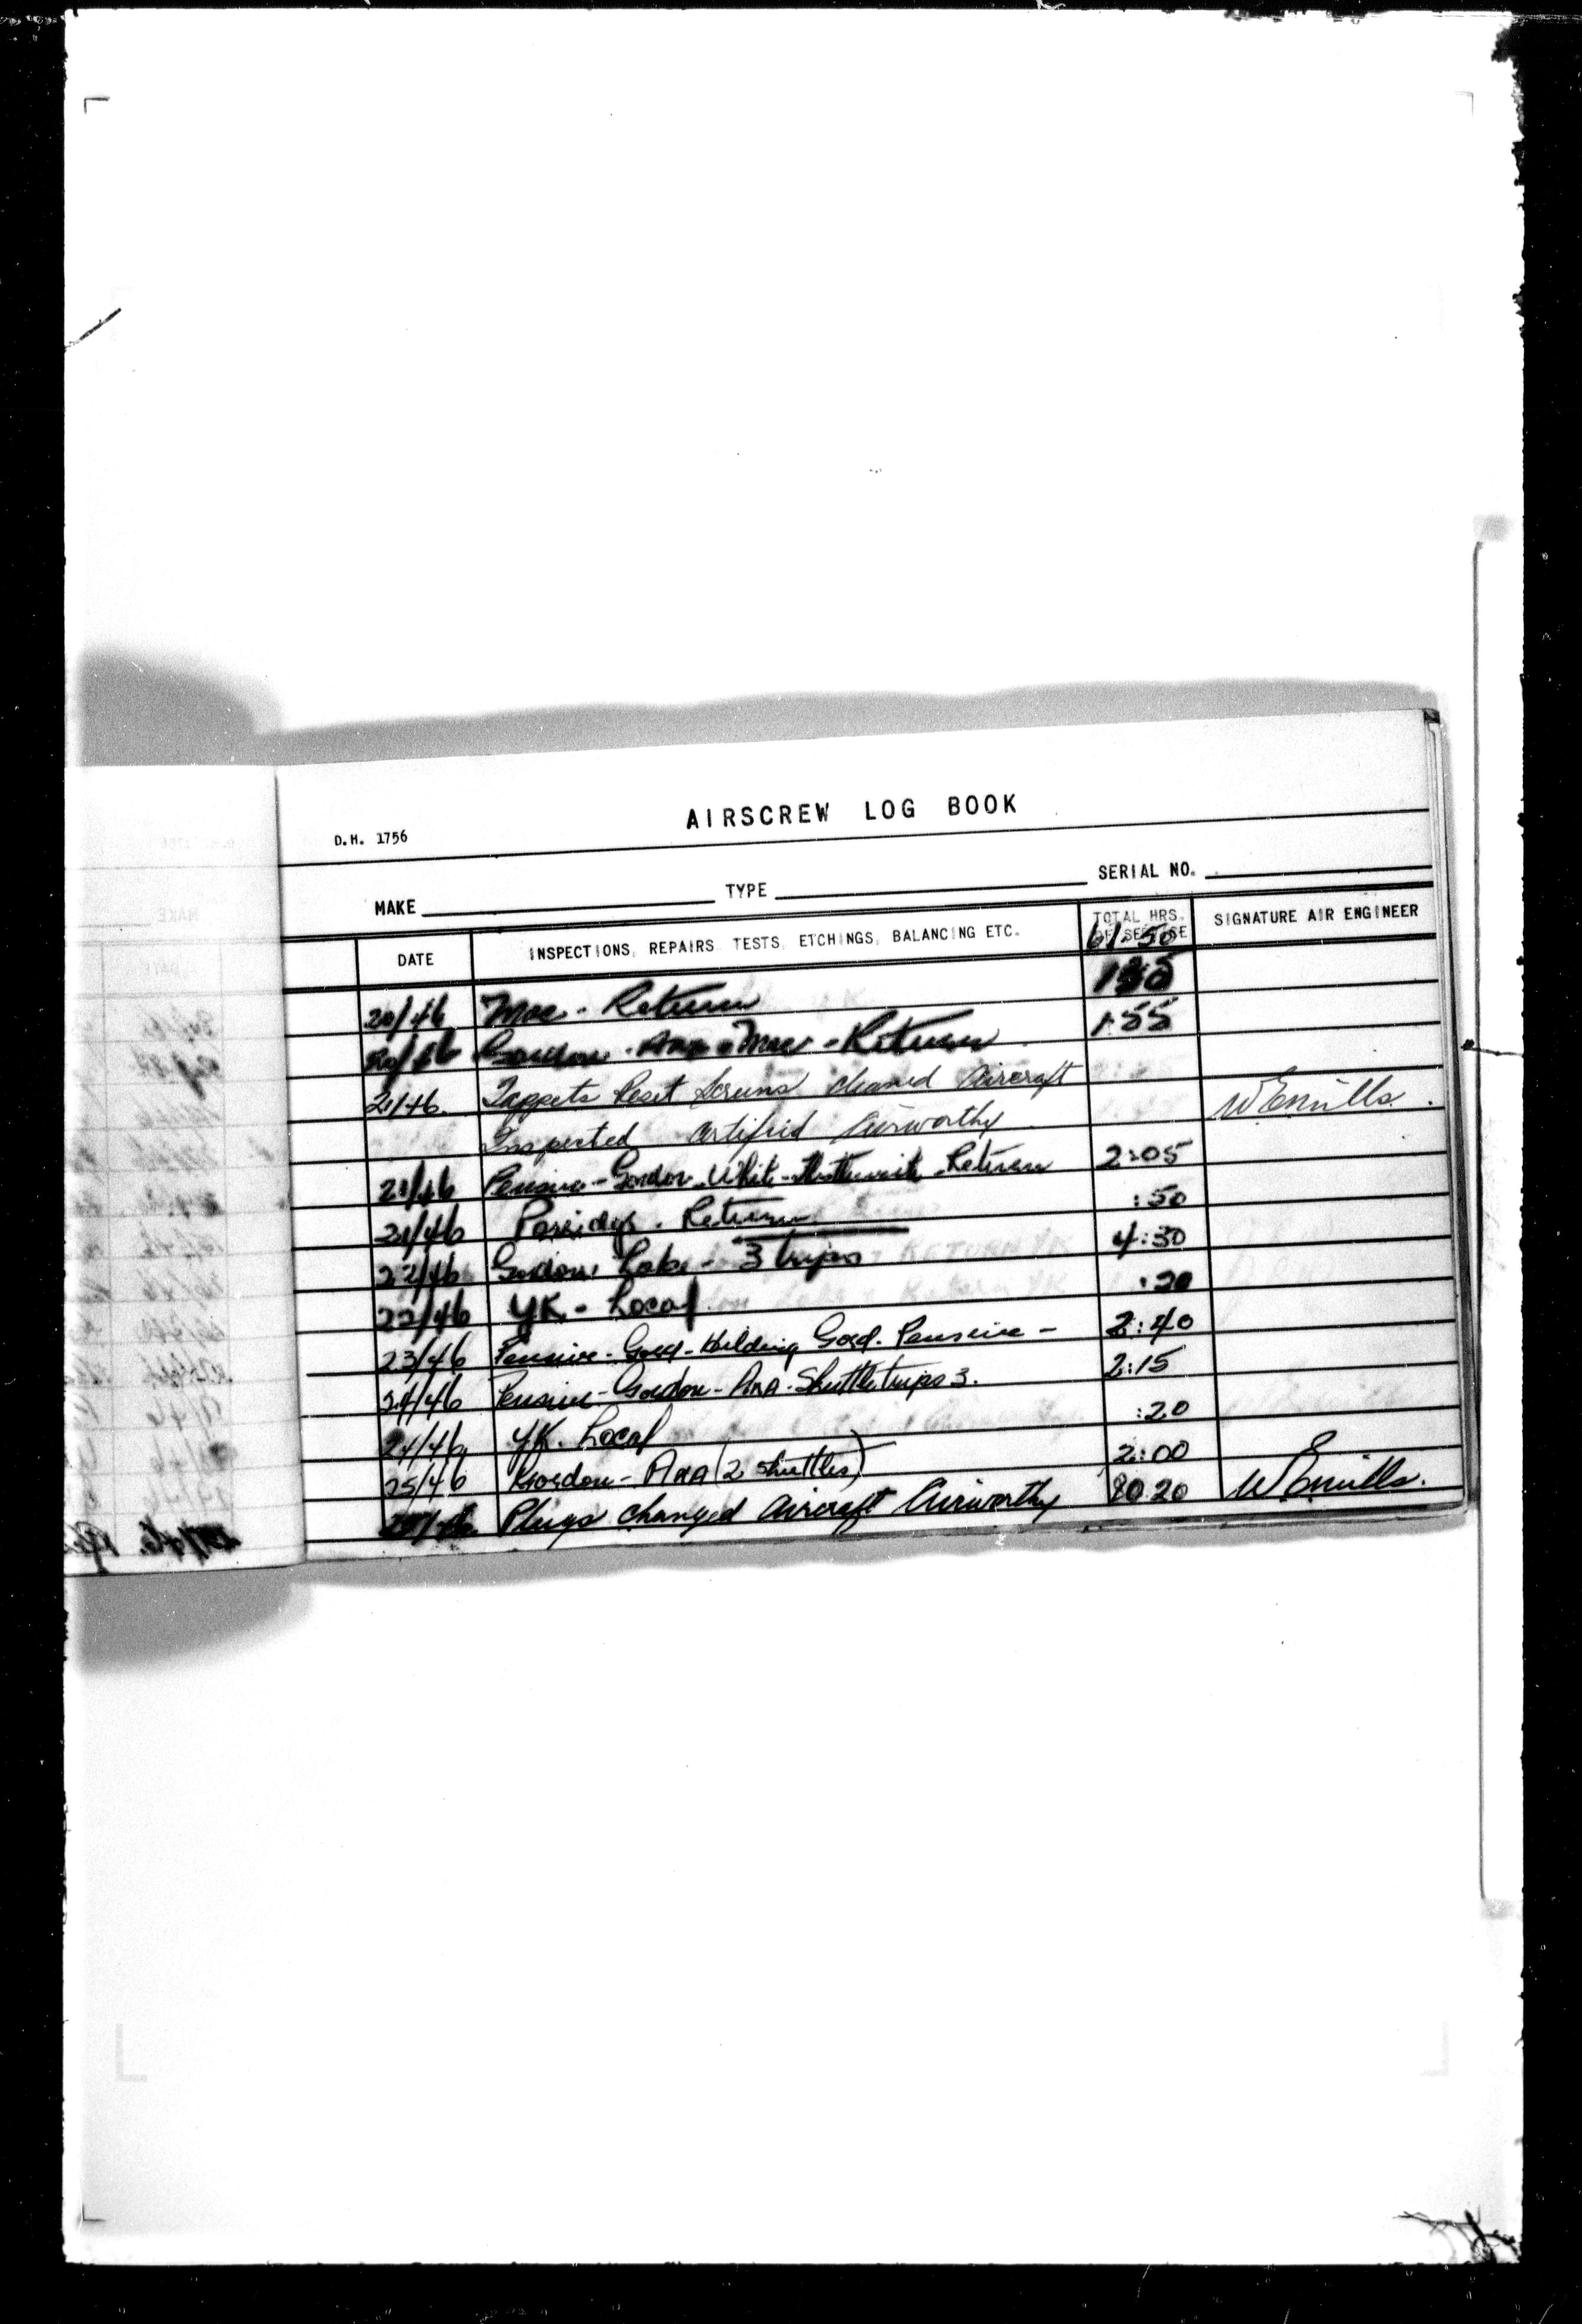 AIRSCREW LOG BOOK
D.H. 1756
MAKE TYPE SERIAL NO.
DATE INSPECTIONS, REPAIRS TESTS, ETCHINGS, BALANCING ETC. TOTAL HRS. OF SERVICE SIGNATURE AIR ENGINEER
61:50
20/46 Mac - Return
20/46 Gordon - Ana - Mac - Return 1:55
21/46 Tappets Reset Screens cleaned Aircraft
Inspected Certified Airworthy WEmills.
21/46 Pensive - Gordon - White - Return 2:05
21/46 Return :50
22/46 Gordon Lake - 3 trips 4:30
22/46 YK. - Local :20
23/46 Pensive - Gord - Hilding Gord. Pensive - 2:40
24/46 Pensive - Gordon - Ana - Shuttle trips 3. 2:15
24/46 YK. Local :20
25/46 Gordon - Ana (2 shuttles) 2:00
Plugs changed Aircraft Airworthy 80.20 WEmills.